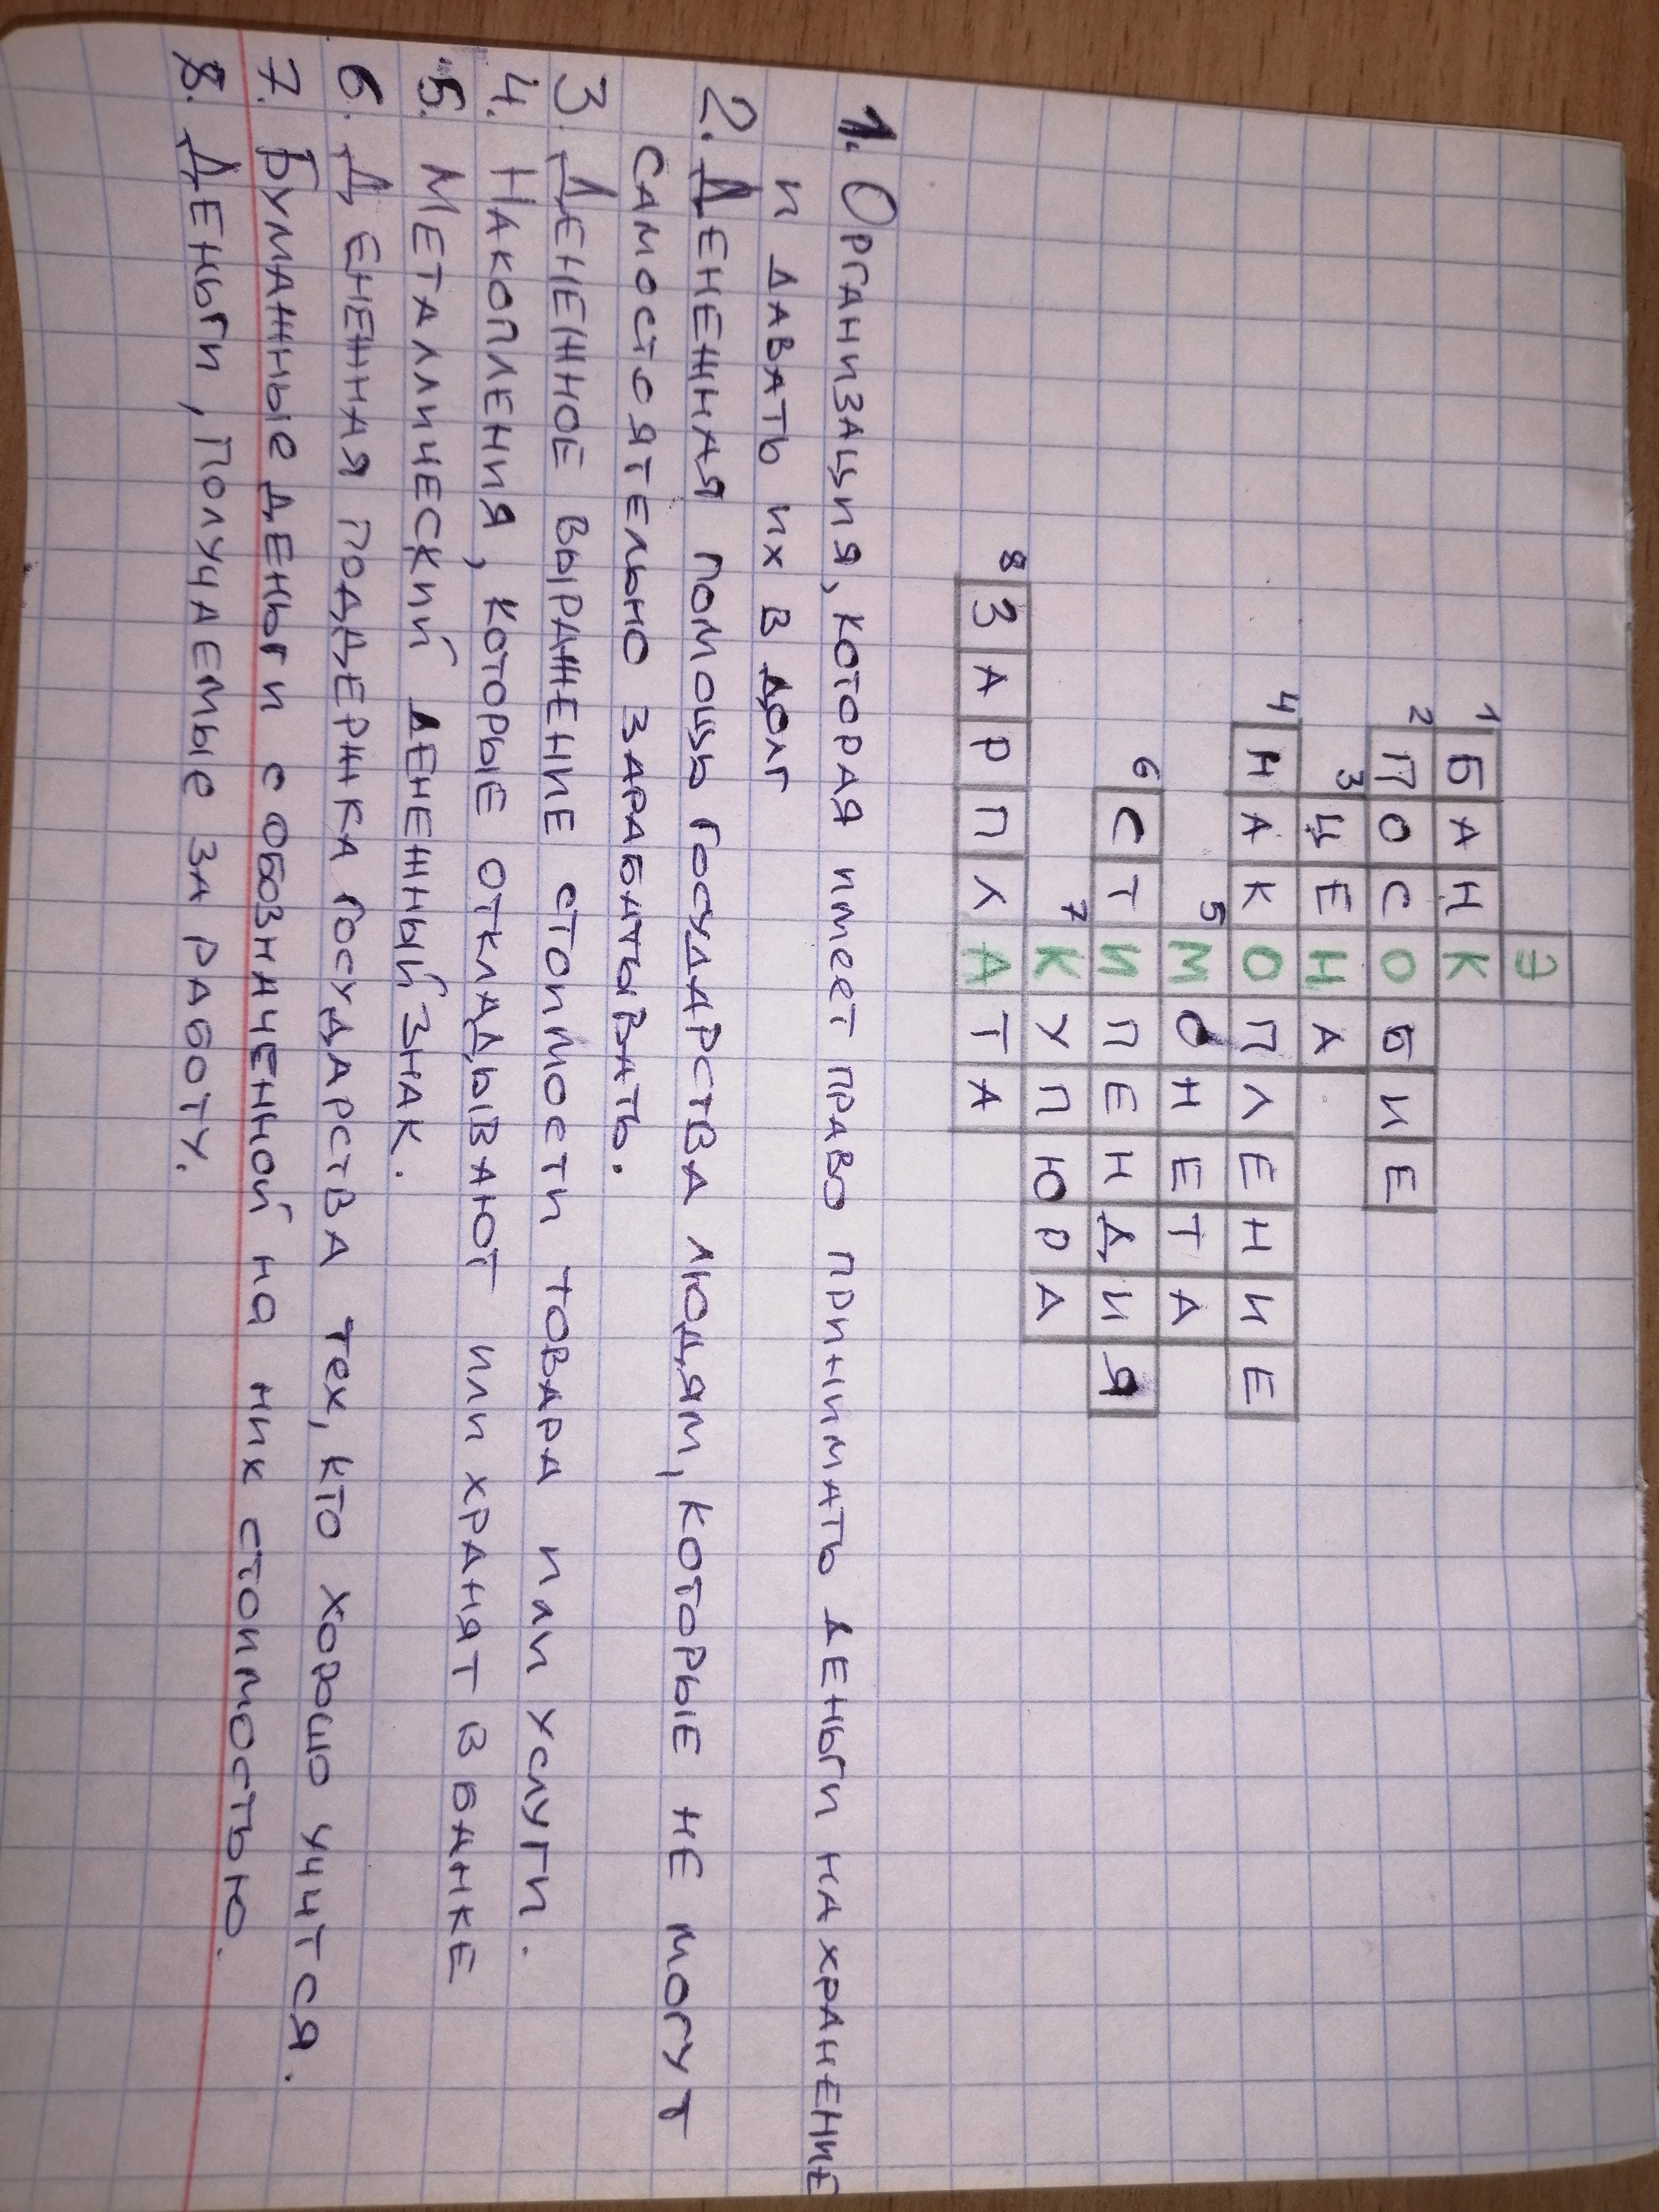 Э
1 БАНК
2 ПОСОБИЕ
3 ЦЕНА
4 НАКОПЛЕНИЕ
5 МОНЕТА
6 СТИПЕНДИЯ
7 КУПЮРА
8 ЗАРПЛАТА
1. Организация, которая имеет право принимать деньги на хранение
и давать их в долг
2. Денежная помощь государства людям, которые не могут
самостоятельно зарабатывать.
3. Денежное выражение стоимости товара или услуги.
4. Накопления, которые откладывают или хранят в банке
5. Металлический денежный знак.
6. Денежная поддержка государства тех, кто хорошо учится.
7. Бумажные деньги с обозначенной на них стоимостью.
8. Деньги, получаемые за работу.